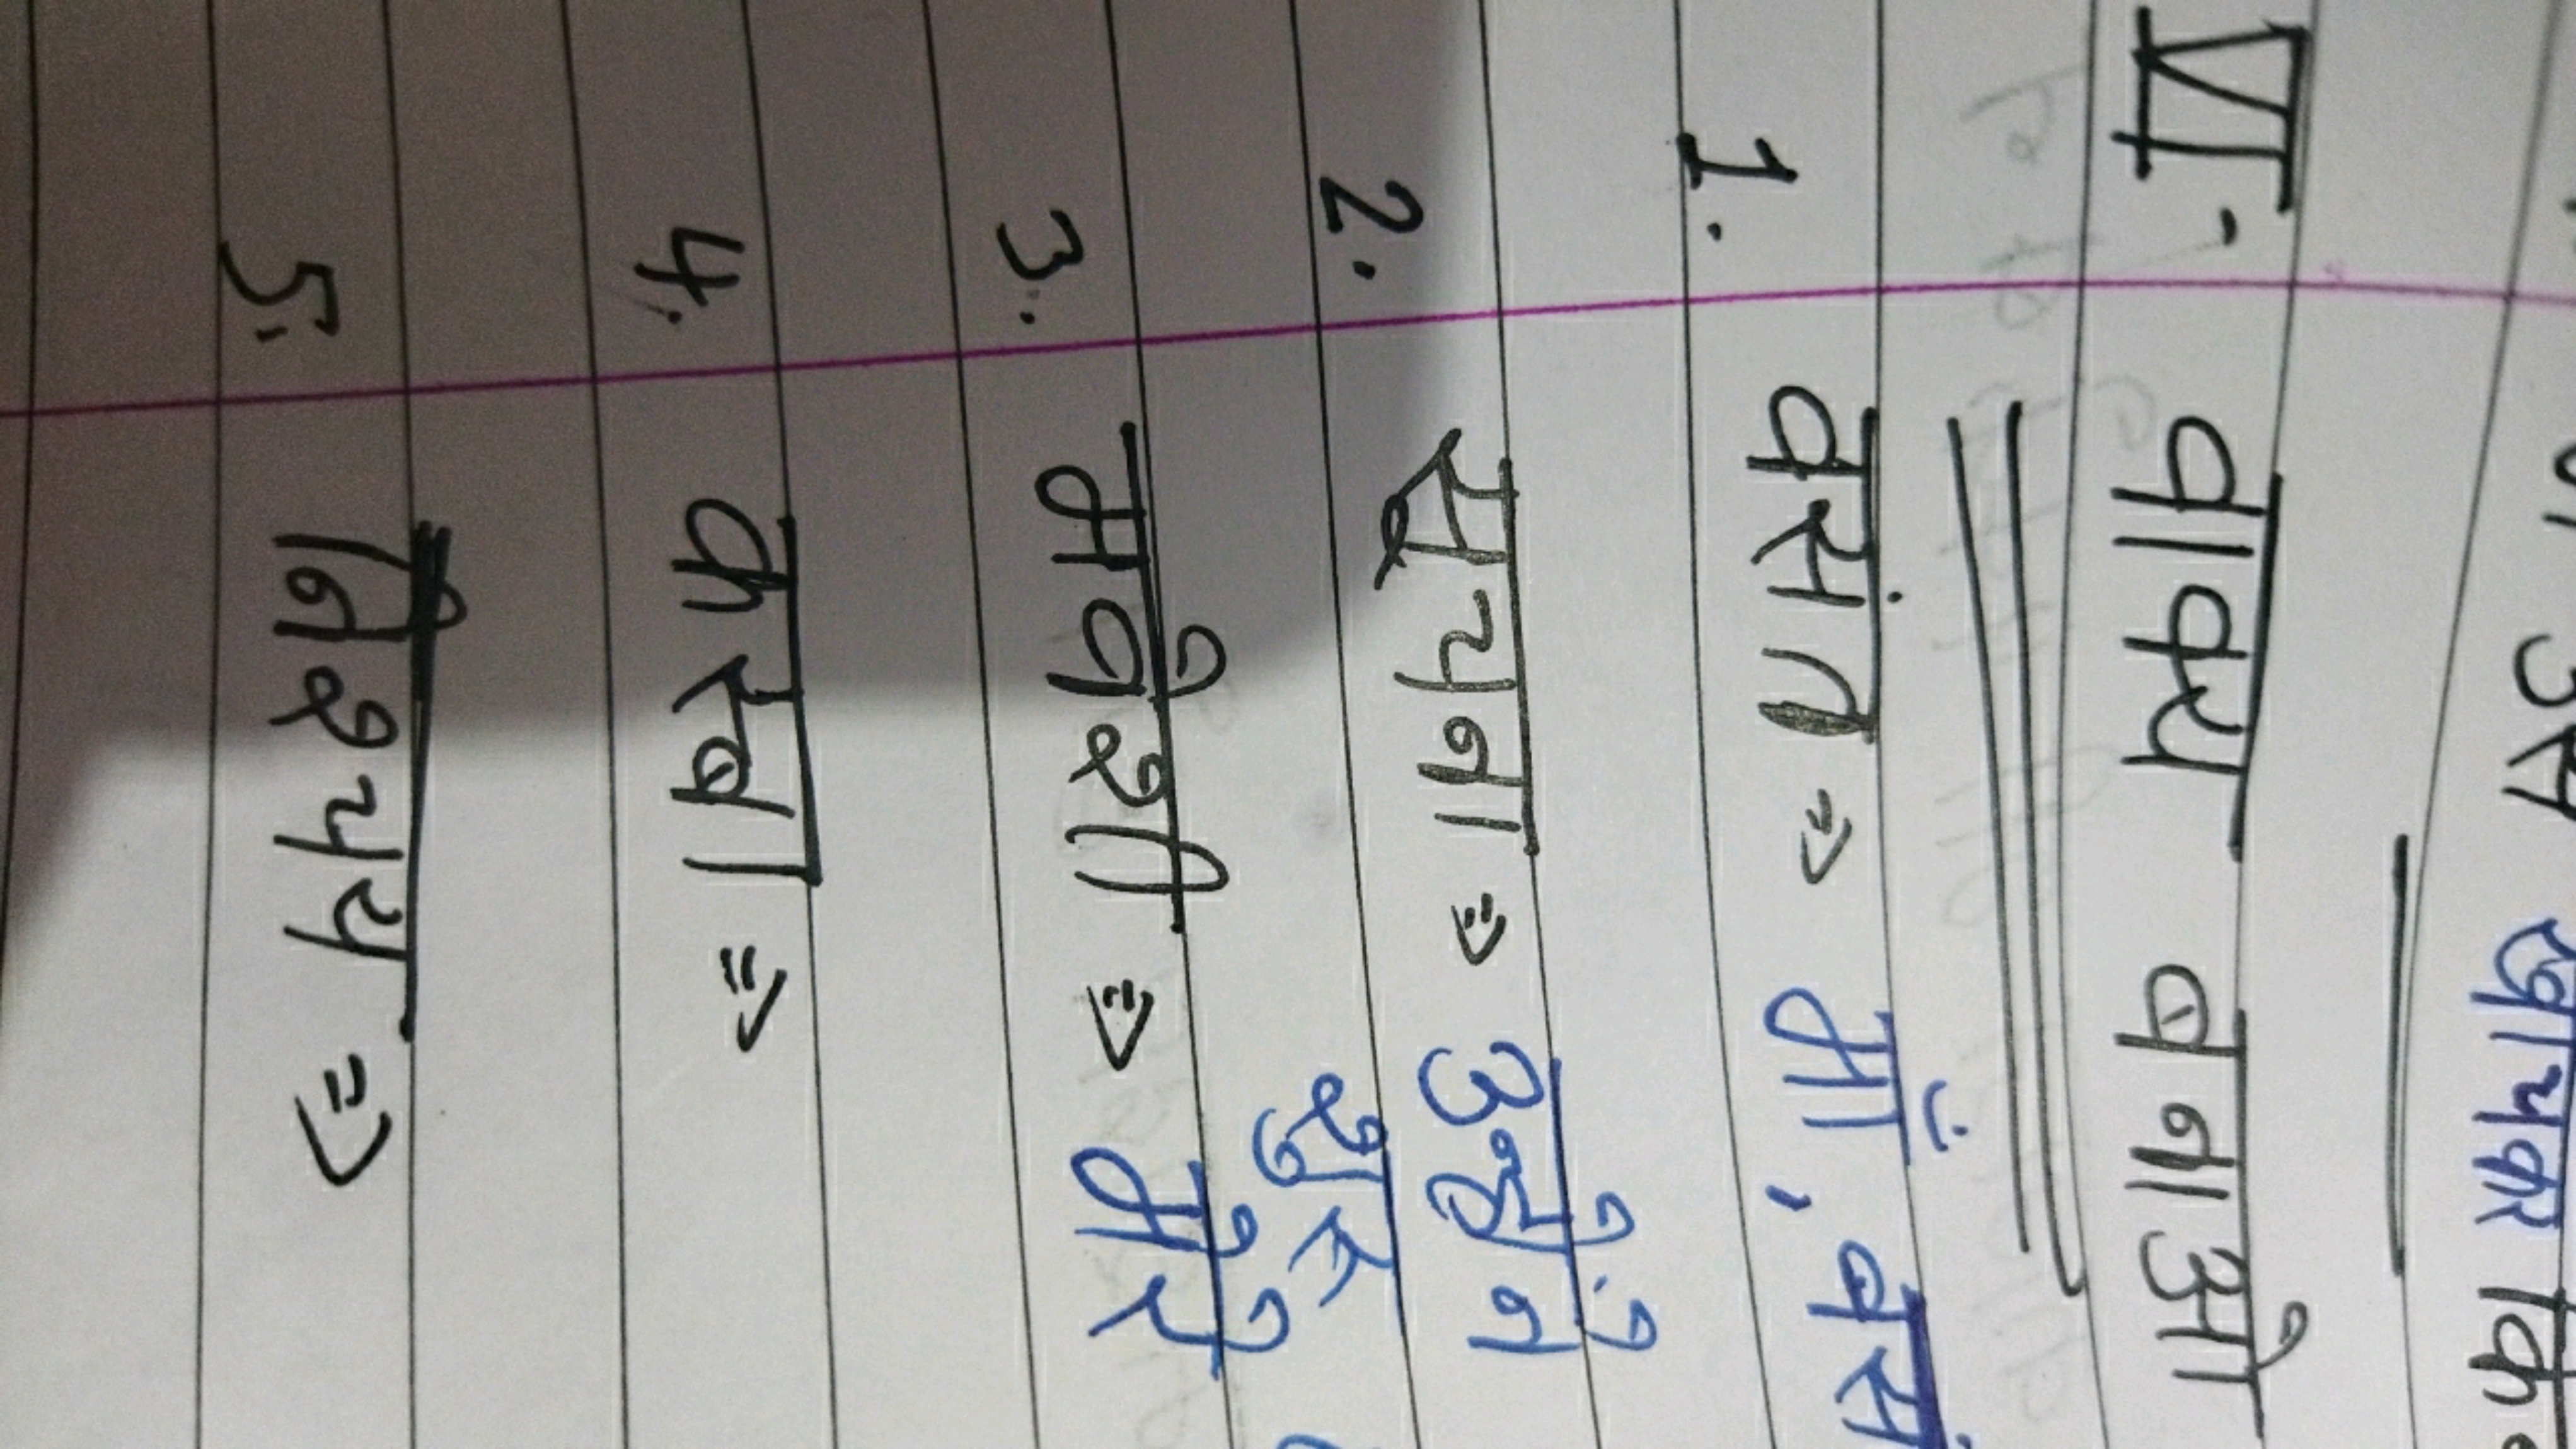 उस
VI- वाक्य बनाओ
1. वसंत => माँ, बसं
2. सूचना => उन्होंने
शुरु
3. मवेशी => मेरे
4. कस्बा =>
5. निश्चय =>